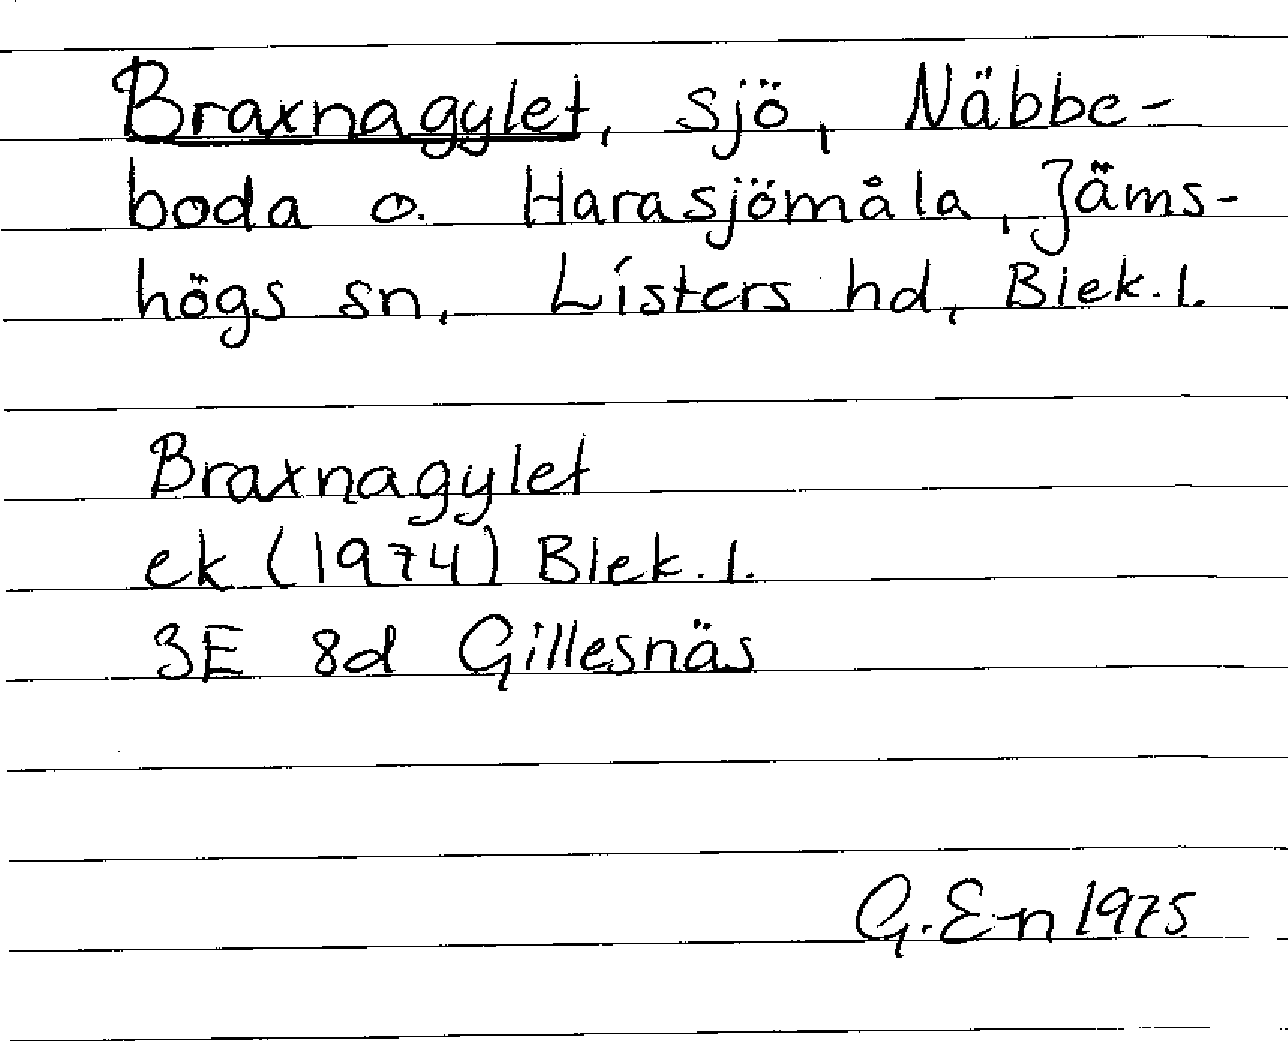 Braxnagylet, sjö, Näbbe-
boda o. Harasjömåla, Jäms-
högs sn, Listers hd, Blek. l.
Braxnagylet
ek (1974) Blek. l.
3E 8d Gillesnäs
G. E-n 1975